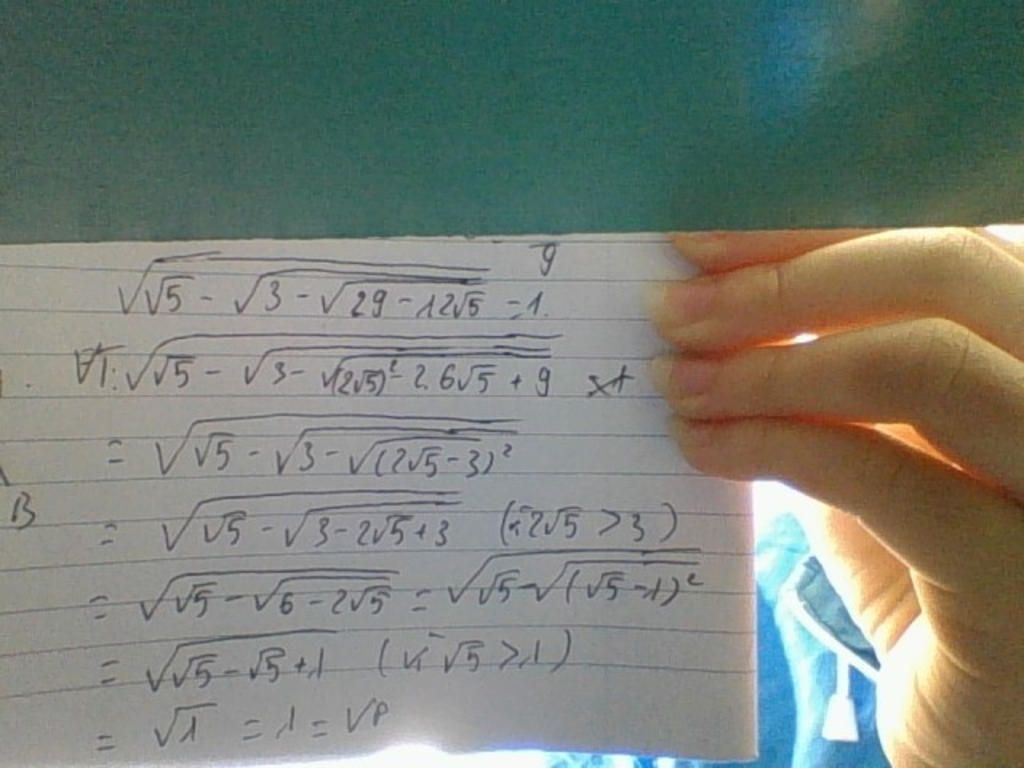 g
√(√5 - √(3 - √(29 - 12√5))) = 1.
VT: √(√5 - √(3 - √((2√5)² - 2.6√5 + 9)))
= √(√5 - √(3 - √((2√5 - 3)²)))
B
= √(√5 - √(3 - 2√5 + 3)) (vì 2√5 > 3)
= √(√5 - √(6 - 2√5)) = √(√5 - √((√5 - 1)²))
= √(√5 - √5 + 1) (vì √5 > 1)
= √1 = 1 = VP